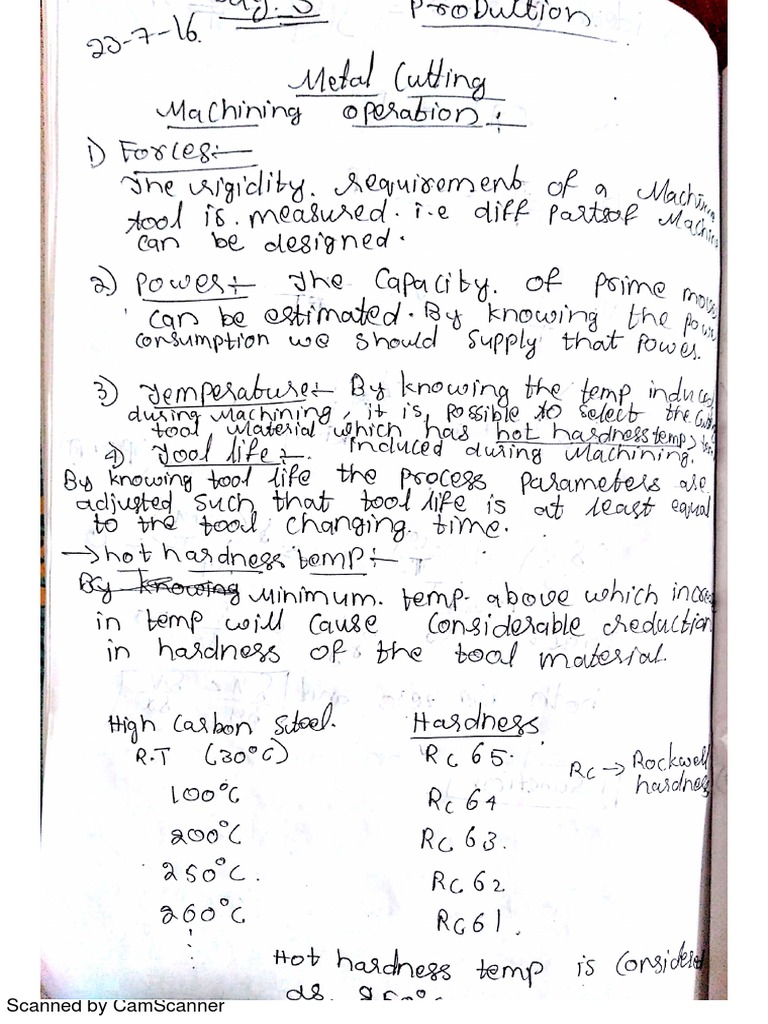 Production
23-7-16.
Metal Cutting
Machining operation :-
1) Forces:-
The rigidity. requirement of a Machin
tool is. measured. i.e diff parts of Machin
can be designed.
2) Power:- The Capacity. of prime mov
can be estimated. By knowing the pow
consumption we should supply that power.
3) Temperature:- By knowing the temp induced
during machining, it is possible to select the
tool material which has hot hardness temp
induced during Machining.
4) Tool life:-
By knowing tool life the process parameters are
adjusted such that tool life is at least equal
to the tool changing time.
→ hot hardness temp:-
By knowing Minimum. temp. above which
in temp will cause considerable reduction
in hardness of the tool material.
High Carbon Steel. Hardness
R.T (30°C) Rc 65.
Rc → Rockwell
hardness
100°C Rc 64
200°C Rc 63.
250°C. Rc 62
260°C Rc 61.
Hot hardness temp is Considered
as 250°C
Scanned by CamScanner